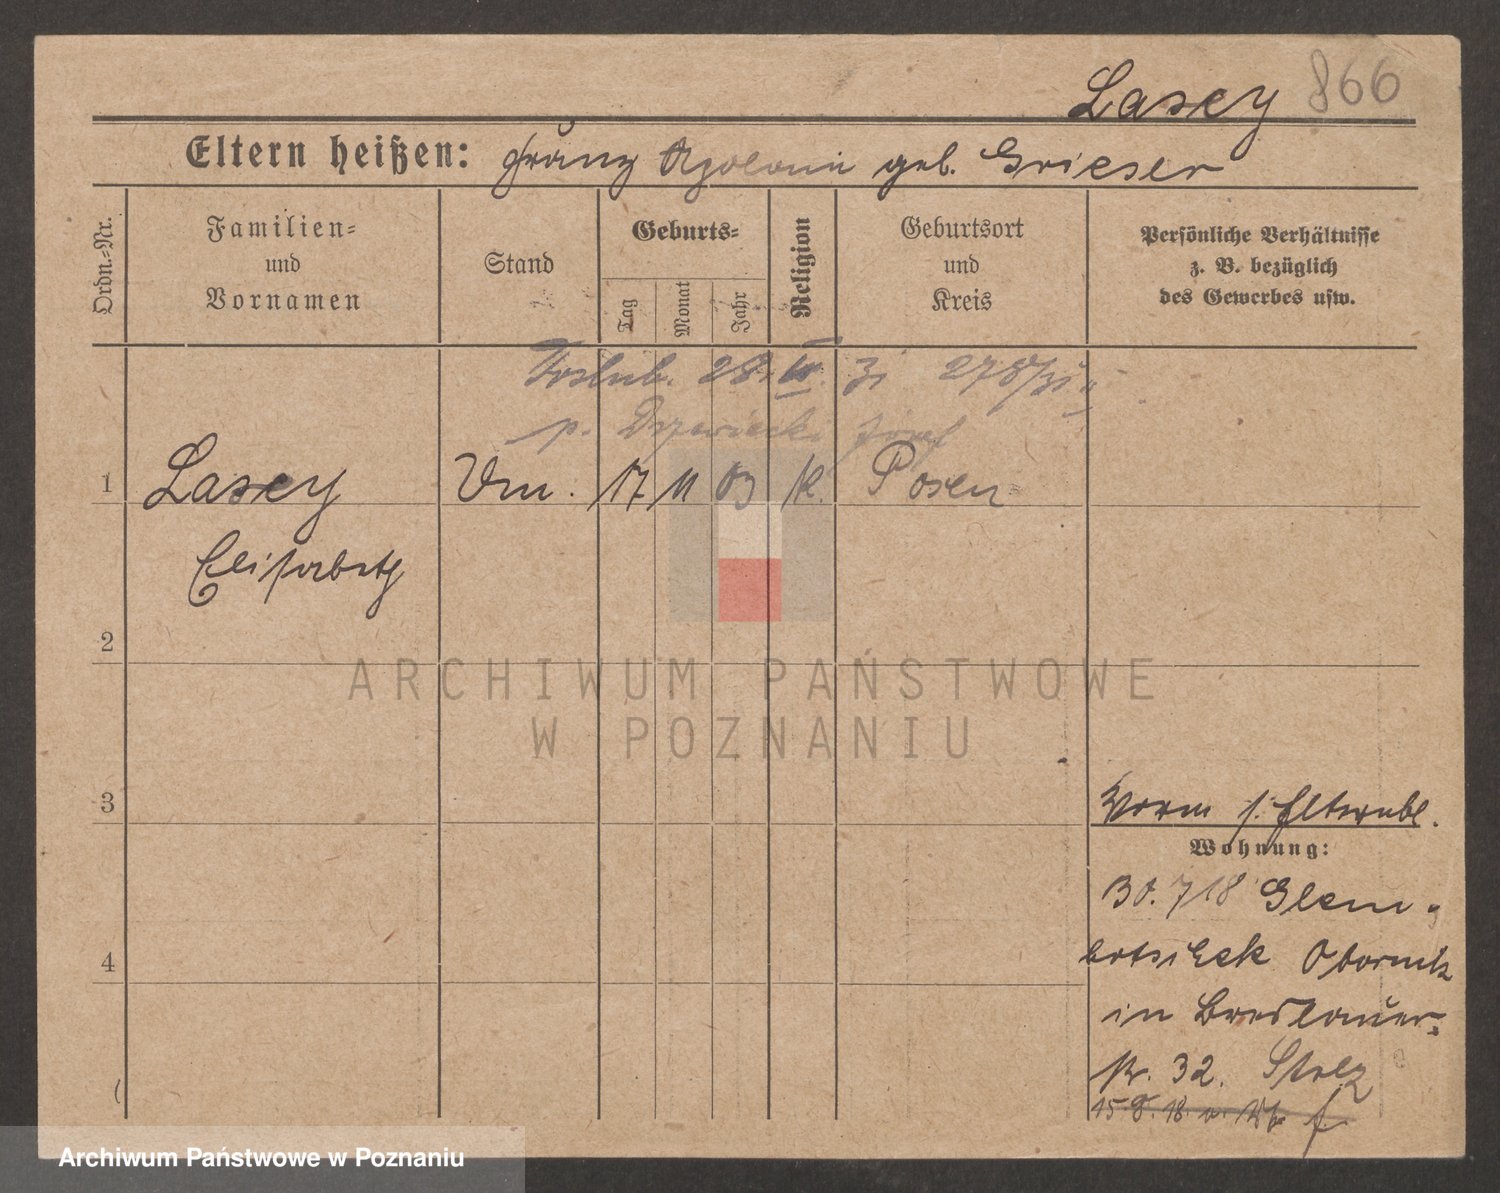 Lasey 866
Eltern heißen: Franz Apolonia geb. Grieser
Ordn.-Nr.
Familien-
und
Vornamen
Stand
Geburts-
Tag
Monat
Jahr
Religion
Geburtsort
und
Kreis
Persönliche Verhältnisse
z. B. bezüglich
des Gewerbes usw.
28. 31 278/31
p. Józef
1 Lasey 17 11 03 k. Posen
Elisabeth
2
3
4
Vorm s. Elternbl.
Wohnung:
30. 718 Glem-
botschek Obornik
in Breslauer-
str. 32. Stolz
15. 8. 18. v.
ARCHIWUM PAŃSTWOWE
W POZNANIU
Archiwum Państwowe w Poznaniu